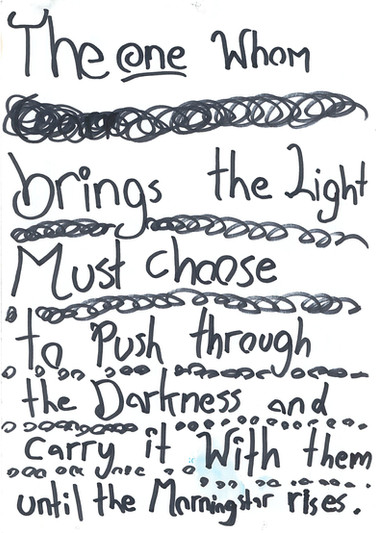 The one Whom
brings the Light
Must choose
to Push through
the Darkness and
carry it With them
until the Morningstar rises.